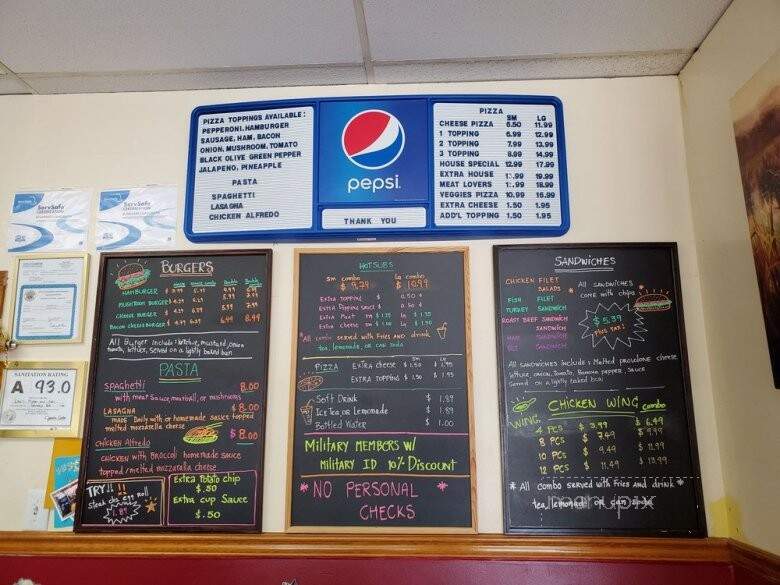 PIZZA TOPPINGS AVAILABLE:
PEPPERONI, HAMBURGER
SAUSAGE, HAM, BACON
ONION, MUSHROOM, TOMATO
BLACK OLIVE GREEN PEPPER
JALAPENO, PINEAPPLE
PASTA
SPAGHETTI
LASAGNA
CHICKEN ALFREDO
pepsi
THANK YOU
PIZZA
SM LG
CHEESE PIZZA 6.50 11.99
1 TOPPING 6.99 12.99
2 TOPPING 7.99 13.99
3 TOPPING 8.99 14.99
HOUSE SPECIAL 12.99 17.99
EXTRA HOUSE 19.99
MEAT LOVERS 18.99
VEGGIES PIZZA 10.99 16.99
EXTRA CHEESE 1.50 1.95
ADD'L TOPPING 1.50 1.95
ServSafe
ServSafe
SANITATION RATING
A 93.0
BURGERS
HAMBURGER
MUSHROOM BURGER
CHEESE BURGER
BACON CHEESEBURGER
All Burger include: ketchup, mustard, onion
tomato, lettuce, served on a lightly baked bun
PASTA
SPAGHETTI 8.00
with meat sauce, meatball, or mushrooms
LASAGNA $8.00
MADE Daily with or homemade sauce topped
melted mozzarella cheese
CHICKEN Alfredo $8.00
CHICKEN WITH BROCCOLI homemade sauce
topped / melted mozzarella cheese
TRY!!
steak chz egg roll
1.89
Extra Potato chip
$.50
Extra cup Sauce
$.50
HOTSUBS
Sm combo La combo
$ 9.79 $ 10.99
Extra topping $ .50 ¢
Extra Dipping sauce $ .50 ¢
Extra Meat
Extra cheese
*All combo served with fries and drink.
tea, lemonade, or can soda
SM LG
PIZZA EXTRA cheese $ 1.50 $ 1.95
EXTRA TOPPING $ 1.50 $ 1.95
Soft Drink $ 1.89
Ice Tea or Lemonade $ 1.89
Bottled Water $ 1.00
Military Members w/
Military ID 10% Discount
*NO PERSONAL *
CHECKS
SANDWICHES
CHICKEN FILET
SALADS
FISH FILET
TURKEY SANDWICH
ROAST BEEF SANDWICH
SANDWICH
SANDWICH
* All SANDWICHES
come with chips
$5.39
plus TAX!
All SANDWICHES include: Melted provolone cheese
lettuce, onion, Tomato, Banana pepper, sauce
Served on a lightly baked bun
CHICKEN WING combo
WING
4 PCS $ 3.99 $ 6.49
8 PCS $ 7.49 $ 9.99
10 PCS $ 9.49
12 PCS $ 11.49
* All combo served with fries and drink *
tea, lemonade or can soda
menupix